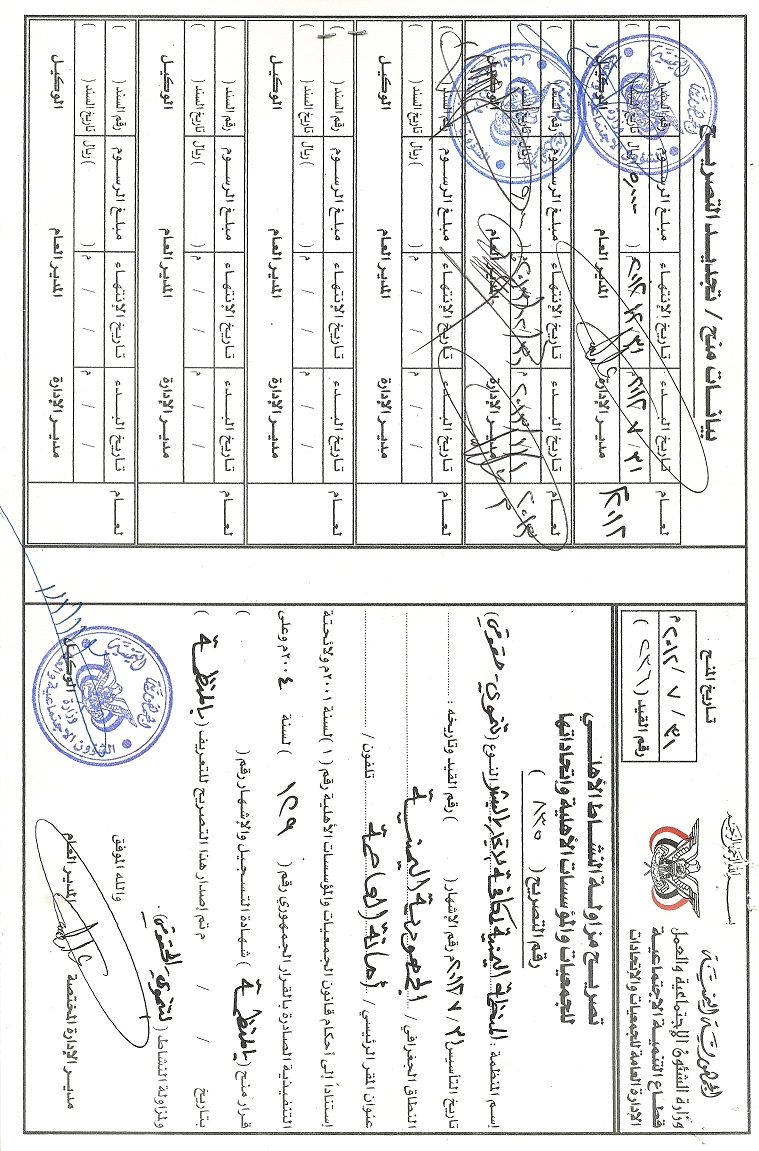 بسم الله الرحمن الرحيم
الجمهورية اليمنية
وزارة الشئون الإجتماعية والعمل
قطاع التنمية الإجتماعية
الإدارة العامة للجمعيات والإتحادات
تاريخ المنح
٣١ / ٧ / ٢٠١٢م
رقم القيد (
تصريح مزاولة النشاط الأهلي
للجمعيات والمؤسسات الأهلية واتحاداتها
رقم التصريح ( ٨٣٥ )
إسم المنظمة : المنظمة اليمنية لمكافحة الاتجار بالبشر النوع ( تنموي - حقوقي )
تاريخ التأسيس ٣ / ٧ / ٢٠١٢م رقم الإشهار ( ) رقم القيد وتاريخه :
النطاق الجغرافي / الجمهورية اليمنية
عنوان المقر الرئيسي / أمانة العاصمة تلفون /
إستناداً إلى أحكام قانون الجمعيات والمؤسسات الأهلية رقم ( ١ ) لسنة ٢٠٠١م ولائحته
التنفيذية الصادرة بالقرار الجمهوري رقم ( ١٢٩ ) لسنة ٢٠٠٤م وعلى
قرار منح ( بالمنظمة ) شهادة التسجيل والإشهار رقم ( )
بتاريخ / / م تم إصدار هذا التصريح للتعريف ( بالمنظمة )
ولمزاولة النشاط ( تنموي حقوقي ).
والله الموفق
مدير الإدارة المختصة المدير العام الوكيل
الجمهورية اليمنية
وزارة الشؤون الاجتماعية والعمل
بيانات منح / تجديد التصريح
لعام تاريخ البدء تاريخ الإنتهاء مبلغ الرسوم رقم السند ( )
٢٠١٢ ٣١ / ٧ / ٢٠١٢م ٣١ / ١٢ / ٢٠١٢م تاريخ السند ( )
مدير الإدارة المدير العام الوكيل
لعام تاريخ البدء تاريخ الإنتهاء مبلغ الرسوم رقم السند ( )
٢٠١٣ ١ / ١ / ٢٠١٣ ريال تاريخ السند
مدير الإدارة المدير العام الوكيل
لعام تاريخ البدء تاريخ الإنتهاء مبلغ الرسوم رقم السند ( )
/ / م / / م ( ) ريال تاريخ السند ( )
مدير الإدارة المدير العام الوكيل
لعام تاريخ البدء تاريخ الإنتهاء مبلغ الرسوم رقم السند ( )
/ / م / / م ( ) ريال تاريخ السند ( )
مدير الإدارة المدير العام الوكيل
لعام تاريخ البدء تاريخ الإنتهاء مبلغ الرسوم رقم السند ( )
/ / م / / م ( ) ريال تاريخ السند ( )
مدير الإدارة المدير العام الوكيل
لعام تاريخ البدء تاريخ الإنتهاء مبلغ الرسوم رقم السند ( )
/ / م / / م ( ) ريال تاريخ السند ( )
مدير الإدارة المدير العام الوكيل